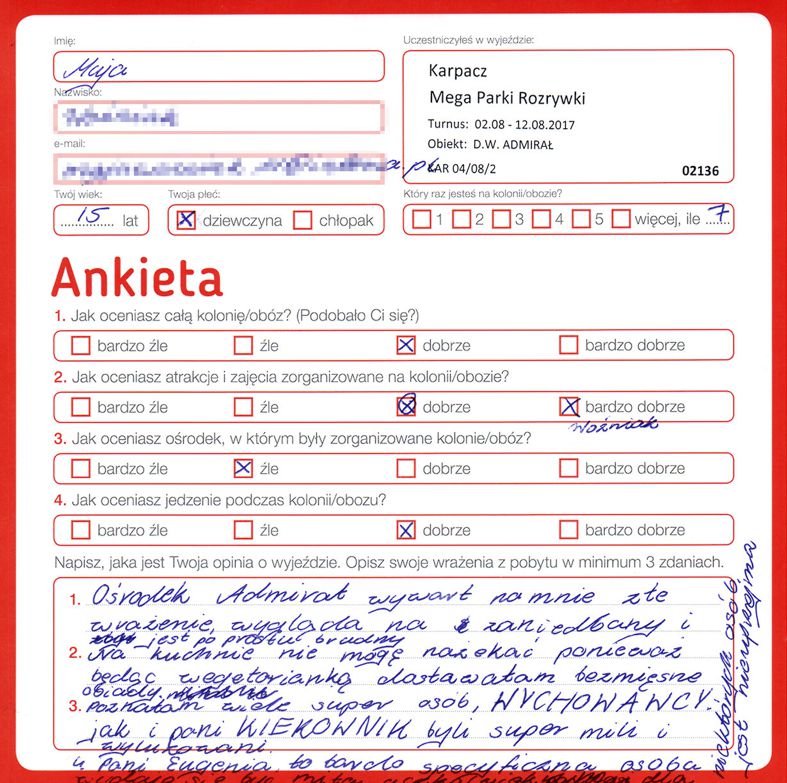 Imię:
Maja
Nazwisko:
e-mail:
a.pl
Twój wiek:
15 lat
Twoja płeć:
dziewczyna chłopak
Uczestniczyłeś w wyjeździe:
Karpacz
Mega Parki Rozrywki
Turnus: 02.08 - 12.08.2017
Obiekt: D.W. ADMIRAŁ
KAR 04/08/2 02136
Który raz jesteś na kolonii/obozie?
1 2 3 4 5 więcej, ile 7
Ankieta
1. Jak oceniasz całą kolonię/obóz? (Podobało Ci się?)
bardzo źle źle dobrze bardzo dobrze
2. Jak oceniasz atrakcje i zajęcia zorganizowane na kolonii/obozie?
bardzo źle źle dobrze bardzo dobrze
Woźniak
3. Jak oceniasz ośrodek, w którym były zorganizowane kolonie/obóz?
bardzo źle źle dobrze bardzo dobrze
4. Jak oceniasz jedzenie podczas kolonii/obozu?
bardzo źle źle dobrze bardzo dobrze
Napisz, jaka jest Twoja opinia o wyjeździe. Opisz swoje wrażenia z pobytu w minimum 3 zdaniach.
1. Ośrodek Admirał wywarł na mnie złe
wrażenie, wygląda na zaniedbany i
jest po prostu brudny
2. Na kuchnie nie mogę narzekać ponieważ
będąc wegetarianką dostawałam bezmięsne
obiady.
3. Poznałam wiele super osób, WYCHOWAWCY
jak i pani KIEROWNIK byli super mili i
wyluzowani.
Pani Eugenia to bardzo specyficzna osoba
niektórych osób
jest nieprzyjemna